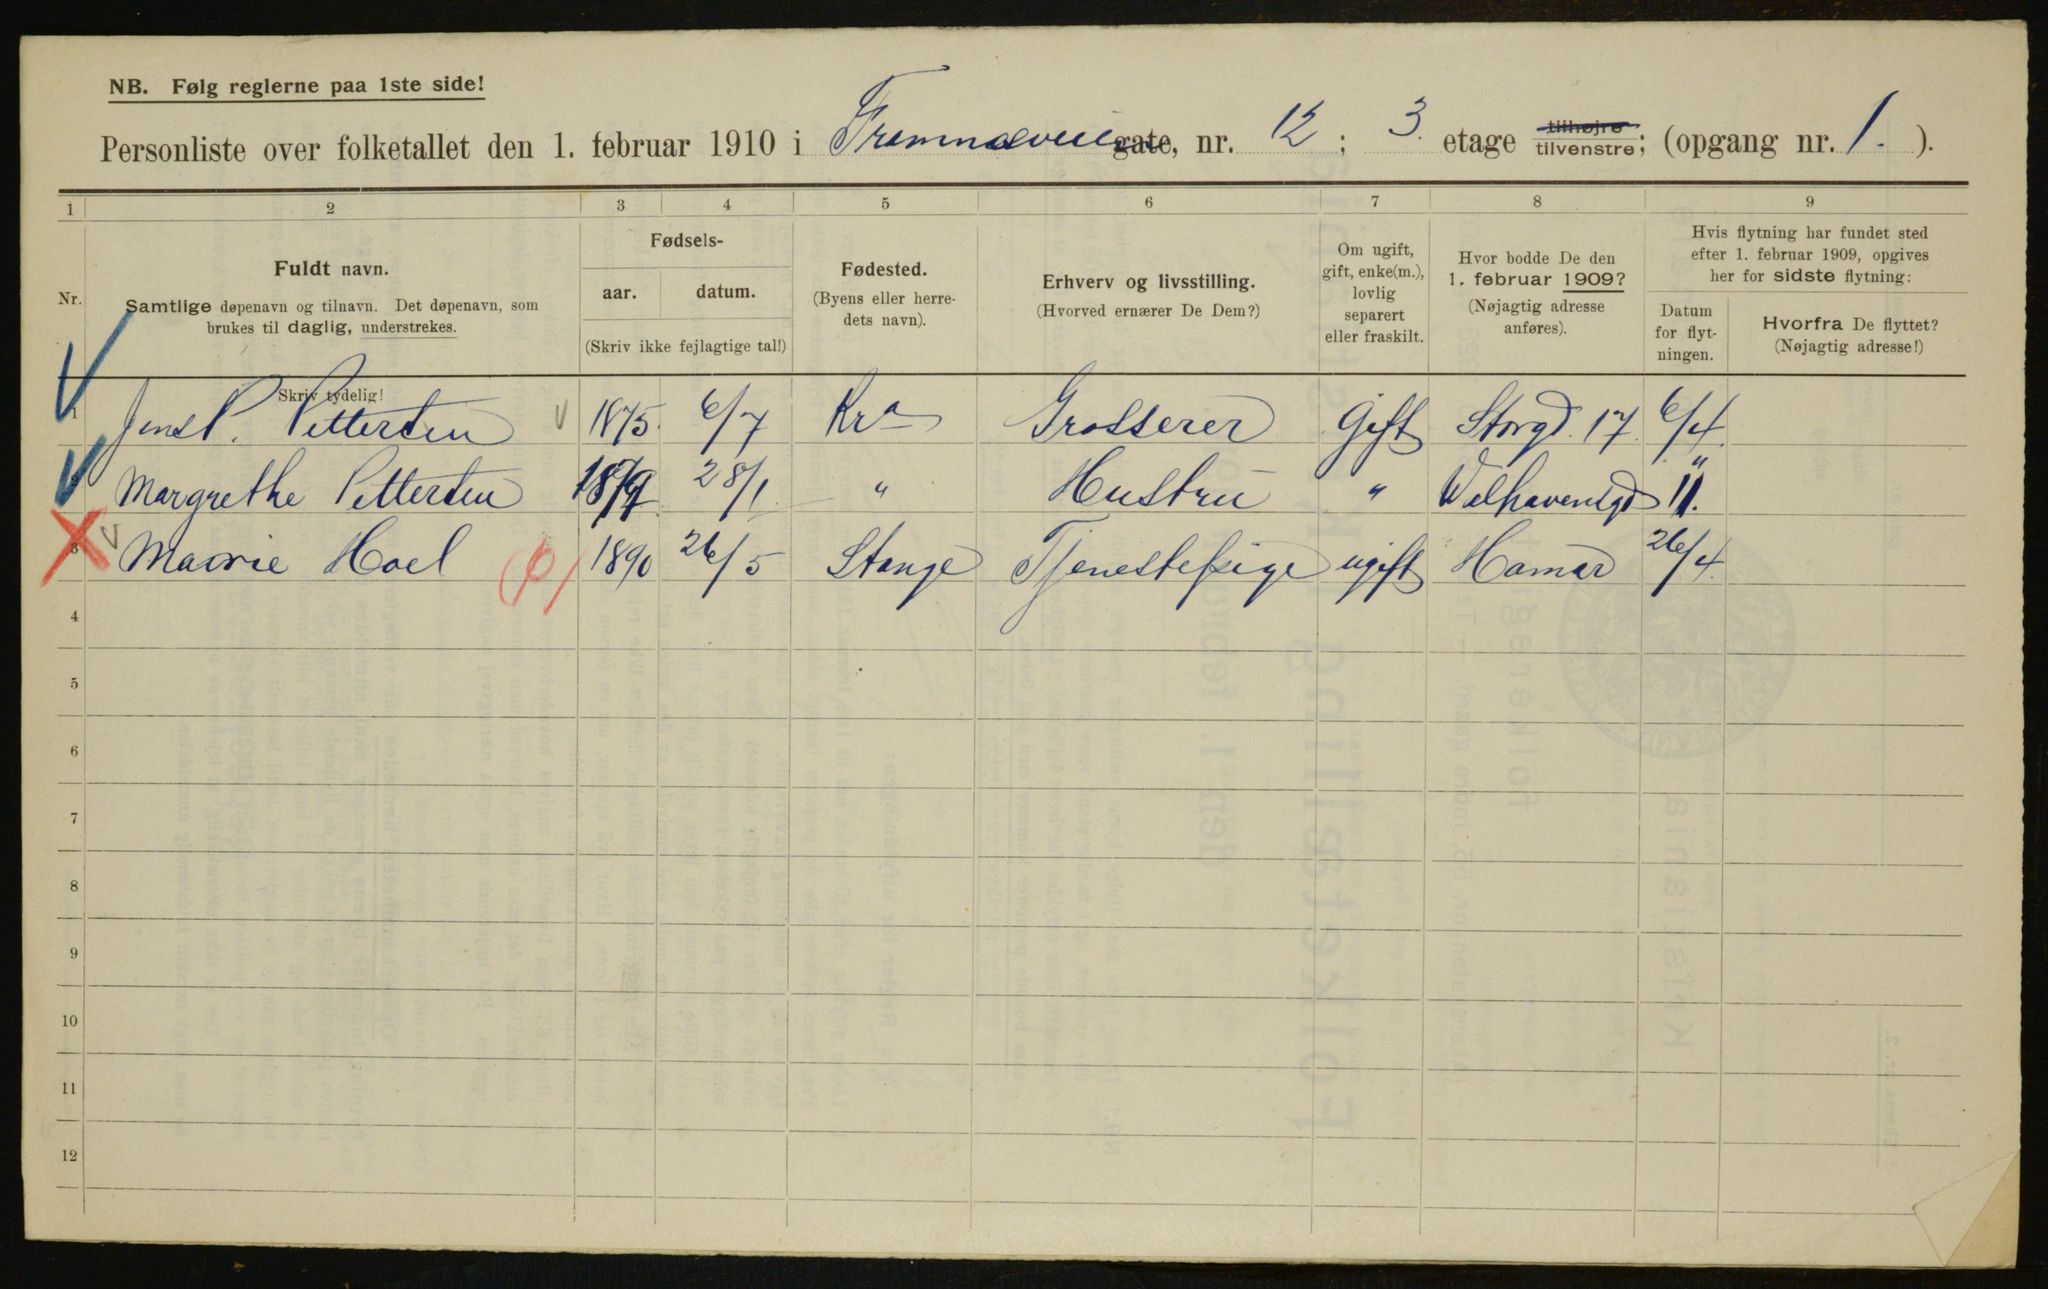 NB. Følg reglerne paa 1ste side!
Personliste over folketallet den 1. februar 1910 i Framnæsveien gate, nr. 12; 3. etage tilhøjre tilvenstre; (opgang nr. 1.).
1 2 3 4 5 6 7 8 9
Nr.
Fuldt navn.
Samtlige døpenavn og tilnavn. Det døpenavn, som
brukes til daglig, understrekes.
Skriv tydelig!
Fødsels-
aar. datum.
(Skriv ikke fejlagtige tal!)
Fødested.
(Byens eller herre-
dets navn).
Erhverv og livsstilling.
(Hvorved ernærer De Dem?)
Om ugift,
gift, enke(m.),
lovlig
separert
eller fraskilt.
Hvor bodde De den
1. februar 1909?
(Nøjagtig adresse
anføres).
Hvis flytning har fundet sted
efter 1. februar 1909, opgives
her for sidste flytning:
Datum
for flyt-
ningen.
Hvorfra De flyttet?
(Nøjagtig adresse!)
1 Jens P. Pettersen 1875 6/7 Kra Grosserer Gift Storgd. 17. 6/4.
2 Margrethe Pettersen 28/1 " Hustru " "
3 Hoel 1890 26/5 Stange Tjenestepige ugift Hamar 26/4.
4
5
6
7
8
9
10
11
12